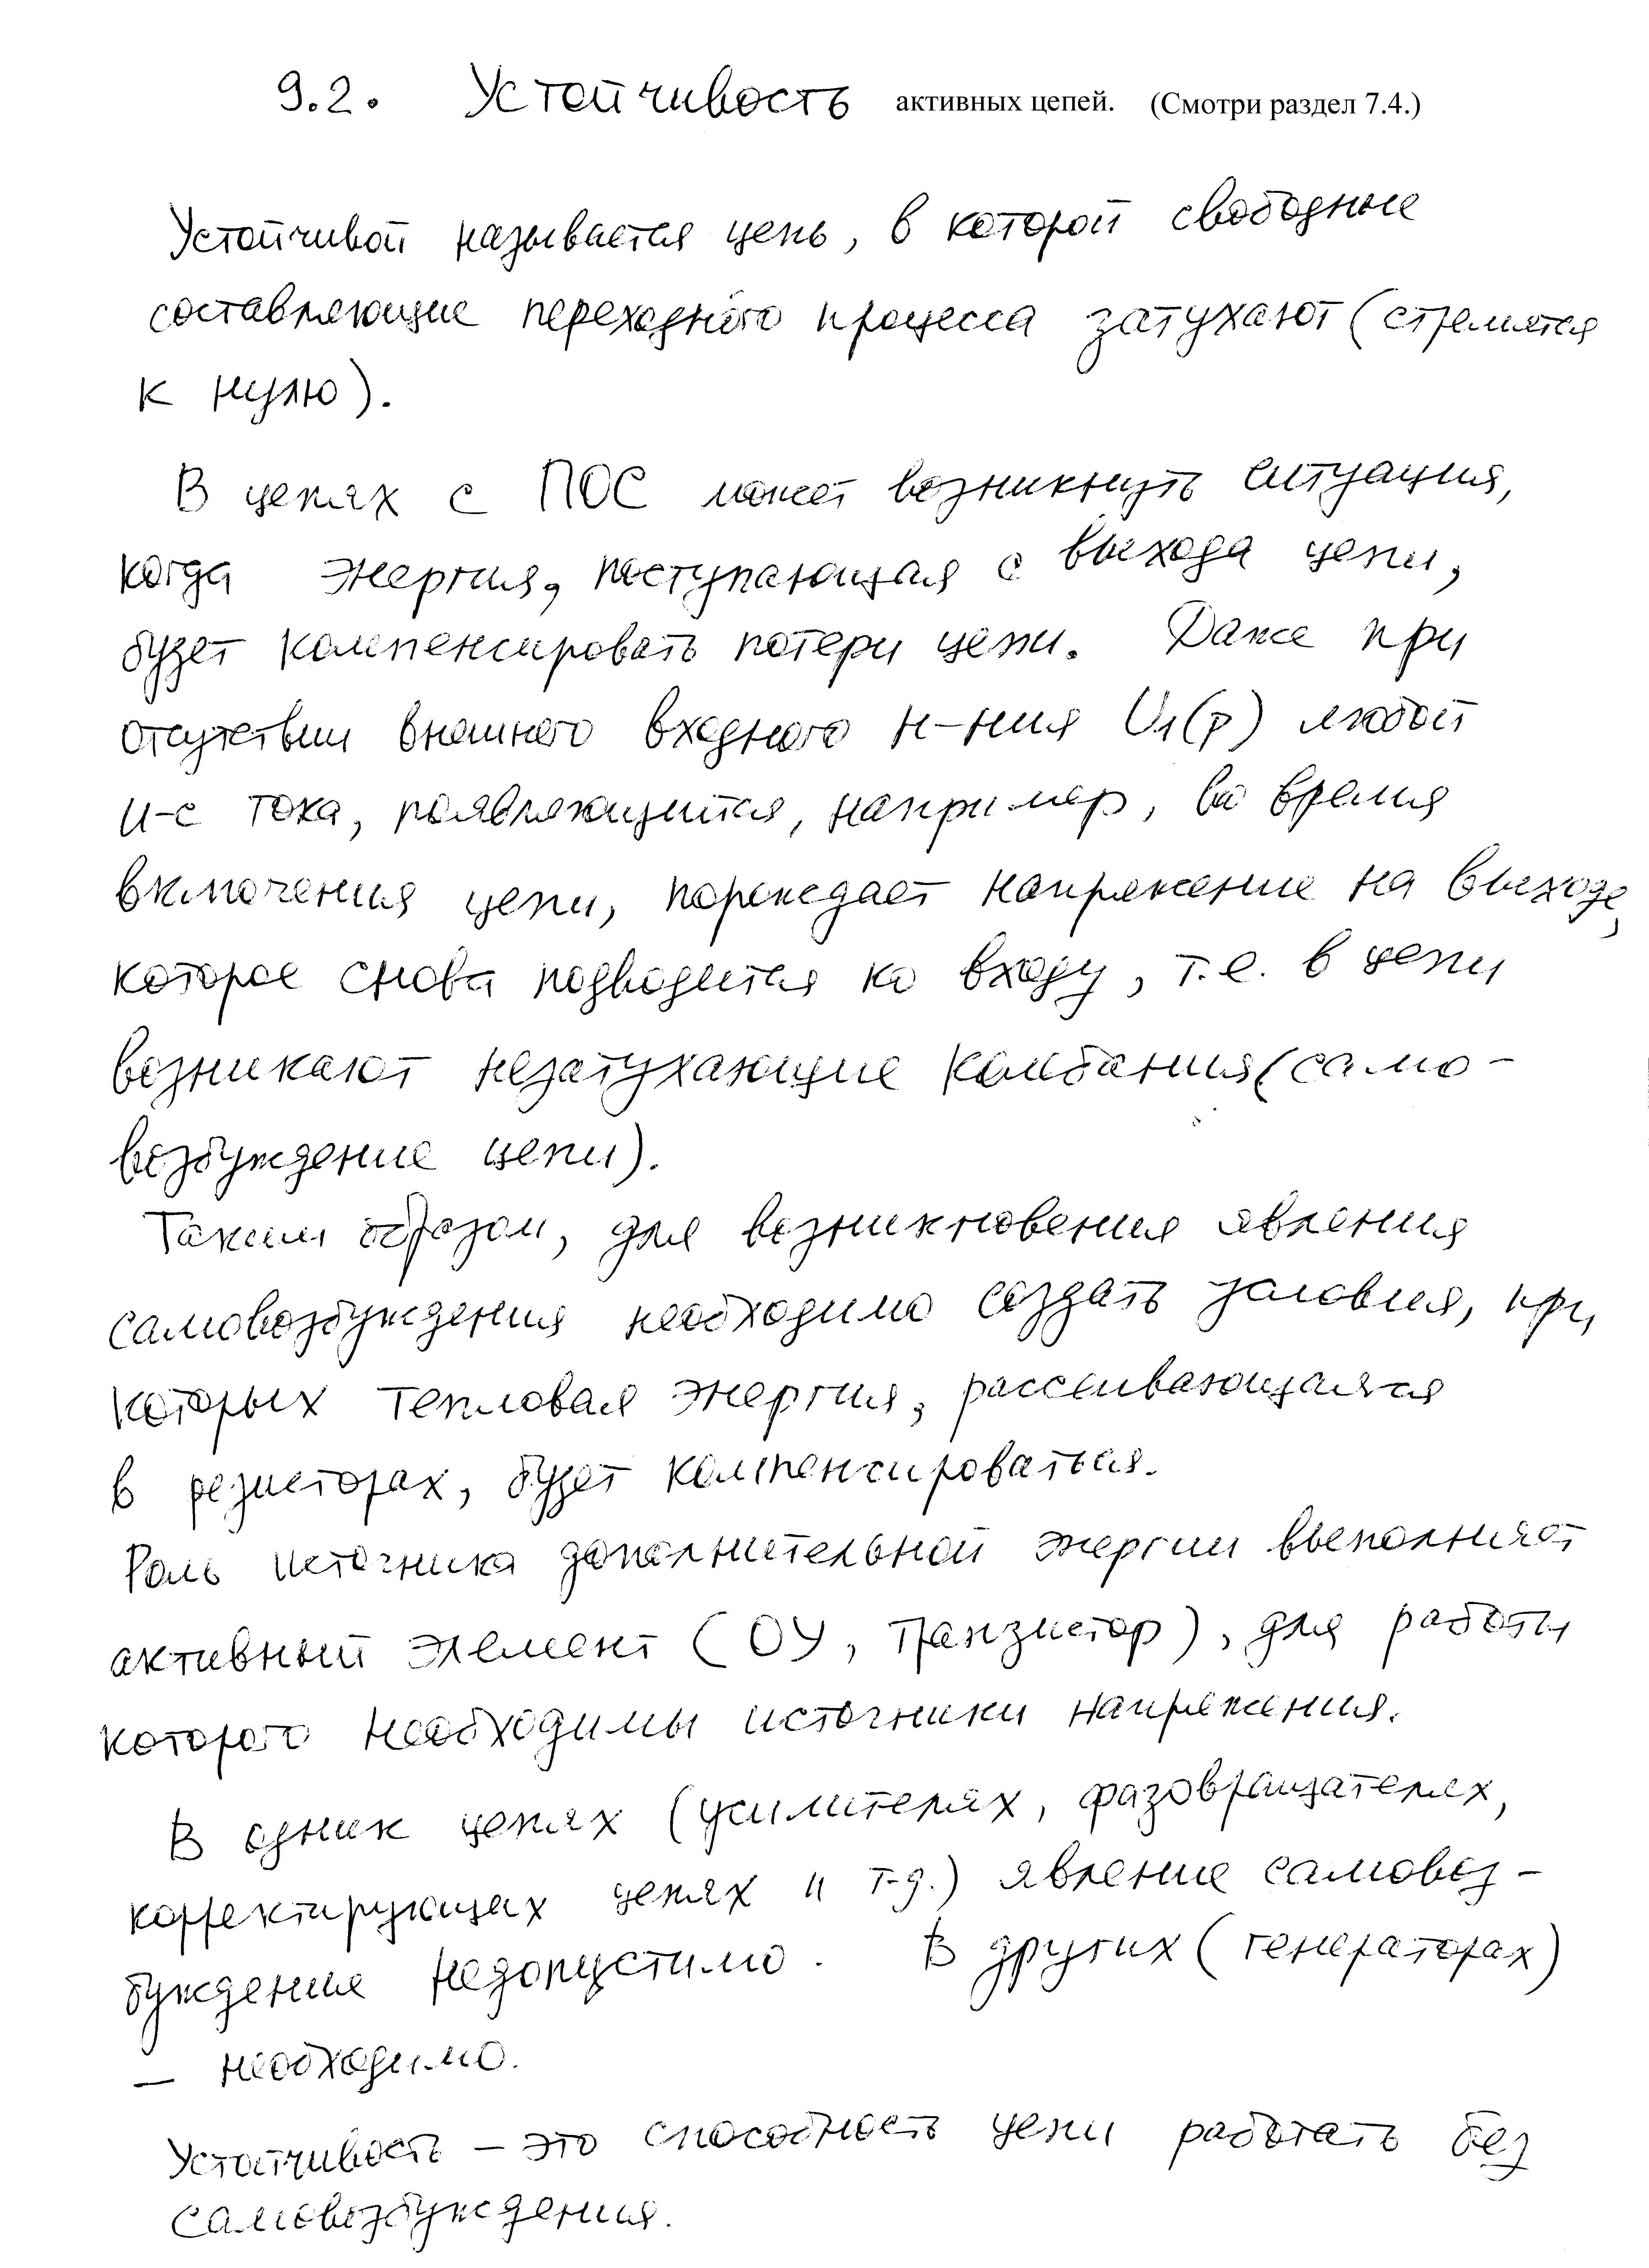 9.2. Устойчивость активных цепей. (Смотри раздел 7.4.)
Устойчивой называется цепь, в которой свободные
составляющие переходного процесса затухают (стремятся
к нулю).
В цепях с ПОС может возникнуть ситуация,
когда энергия, поступающая с выхода цепи,
будет компенсировать потери цепи. Даже при
отсутствии внешнего входного н-ния U1(p) любой
и-с тока, появляющийся, например, во время
включения цепи, порождает напряжение на выходе,
которое снова подводится ко входу, т.е. в цепи
возникают незатухающие колебания (само-
возбуждение цепи).
Таким образом, для возникновения явления
самовозбуждения необходимо создать условия, при
которых тепловая энергия, рассеивающаяся
в резисторах, будет компенсироваться.
Роль источника дополнительной энергии выполняет
активный элемент (ОУ, транзистор), для работы
которого необходимы источники напряжения.
В одних цепях (усилителях, фазовращателях,
корректирующих цепях и т.д.) явление самовоз-
буждения недопустимо. В других (генераторах)
— необходимо.
Устойчивость – это способность цепи работать без
самовозбуждения.